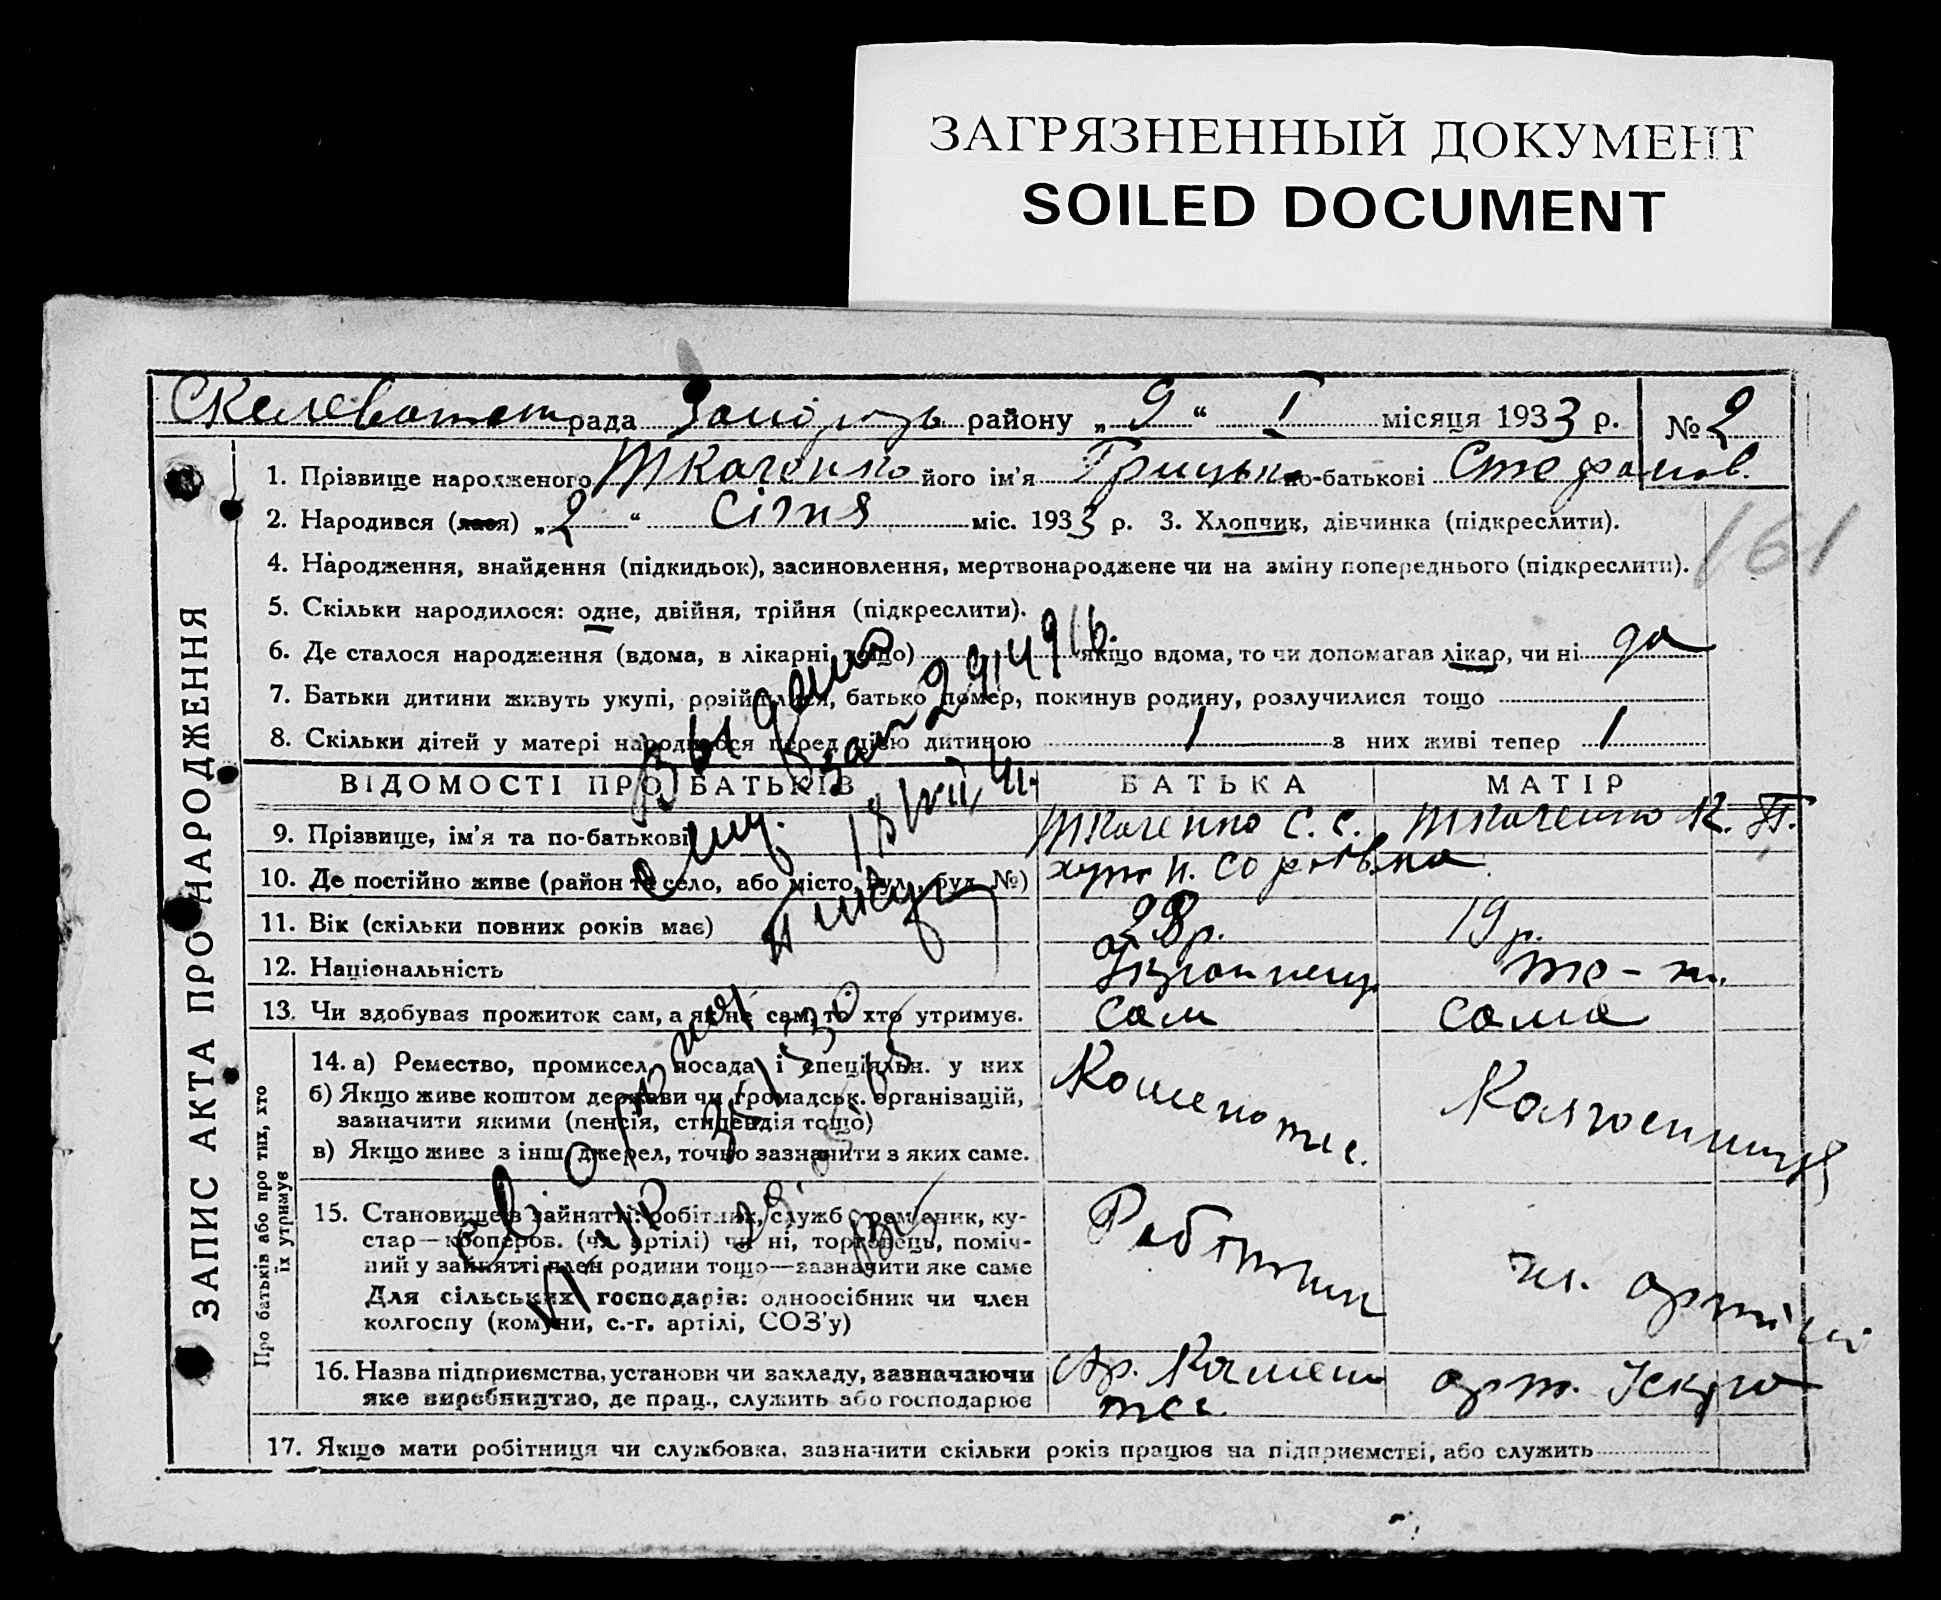 ЗАГРЯЗНЕННЫЙ ДОКУМЕНТ
SOILED DOCUMENT
рада району „9“ I місяця 1933 р. № 2
1. Прізвище народженого Ткаченко його ім'я Грицько по-батькові Стефанов.
2. Народився (лася) „2“ січня міс. 1933 р. 3. Хлопчик, дівчинка (підкреслити).
161
4. Народження, знайдення (підкидьок), засиновлення, мертвонароджене чи на зміну попереднього (підкреслити).
5. Скільки народилося: одне, двійня, трійня (підкреслити).
6. Де сталося народження (вдома, в лікарні тощо) якщо вдома, то чи допомагав лікар, чи ні да
7. Батьки дитини живуть укупі, розійшлися, батько помер, покинув родину, розлучилися тощо
8. Скільки дітей у матері народилося перед цією дитиною 1 з них живі тепер 1
ВІДОМОСТІ ПРО БАТЬКІВ БАТЬКА МАТІР
9. Прізвище, ім'я та по-батькові Ткаченко С. С. Ткаченко К. П.
10. Де постійно живе (район та село, або місто, вул., буд. №)
11. Вік (скільки повних років має) 28 р. 19 р.
12. Національність те-ж.
13. Чи здобуває прожиток сам, а як не сам, то хто утримує. сам сама
14. а) Ремество, промисел, посада і спеціяльн. у них
б) Якщо живе коштом держави чи громадськ. організацій,
зазначити якими (пенсія, стипендія тощо)
в) Якщо живе з інш. джерел, точно зазначити з яких саме.
Колгоспниця
15. Становище в зайнятті: робітник, службов., ремісник, ку-
стар—коопероб. (чл. артілі) чи ні, торговець, поміч-
ний у зайнятті член родини тощо—зазначити яке саме
Для сільських господарів: одноосібник чи член
колгоспу (комуни, с.-г. артілі, СОЗ'у)
Робітник
чл. артілі
16. Назва підприємства, установи чи закладу, зазначаючи
яке виробництво, де прац., служить або господарює
арт. Іскра
17. Якщо мати робітниця чи службовка, зазначити скільки років працює на підприємстві, або служить
ЗАПИС АКТА ПРО НАРОДЖЕННЯ
Про батьків або про тих, хто
їх утримує